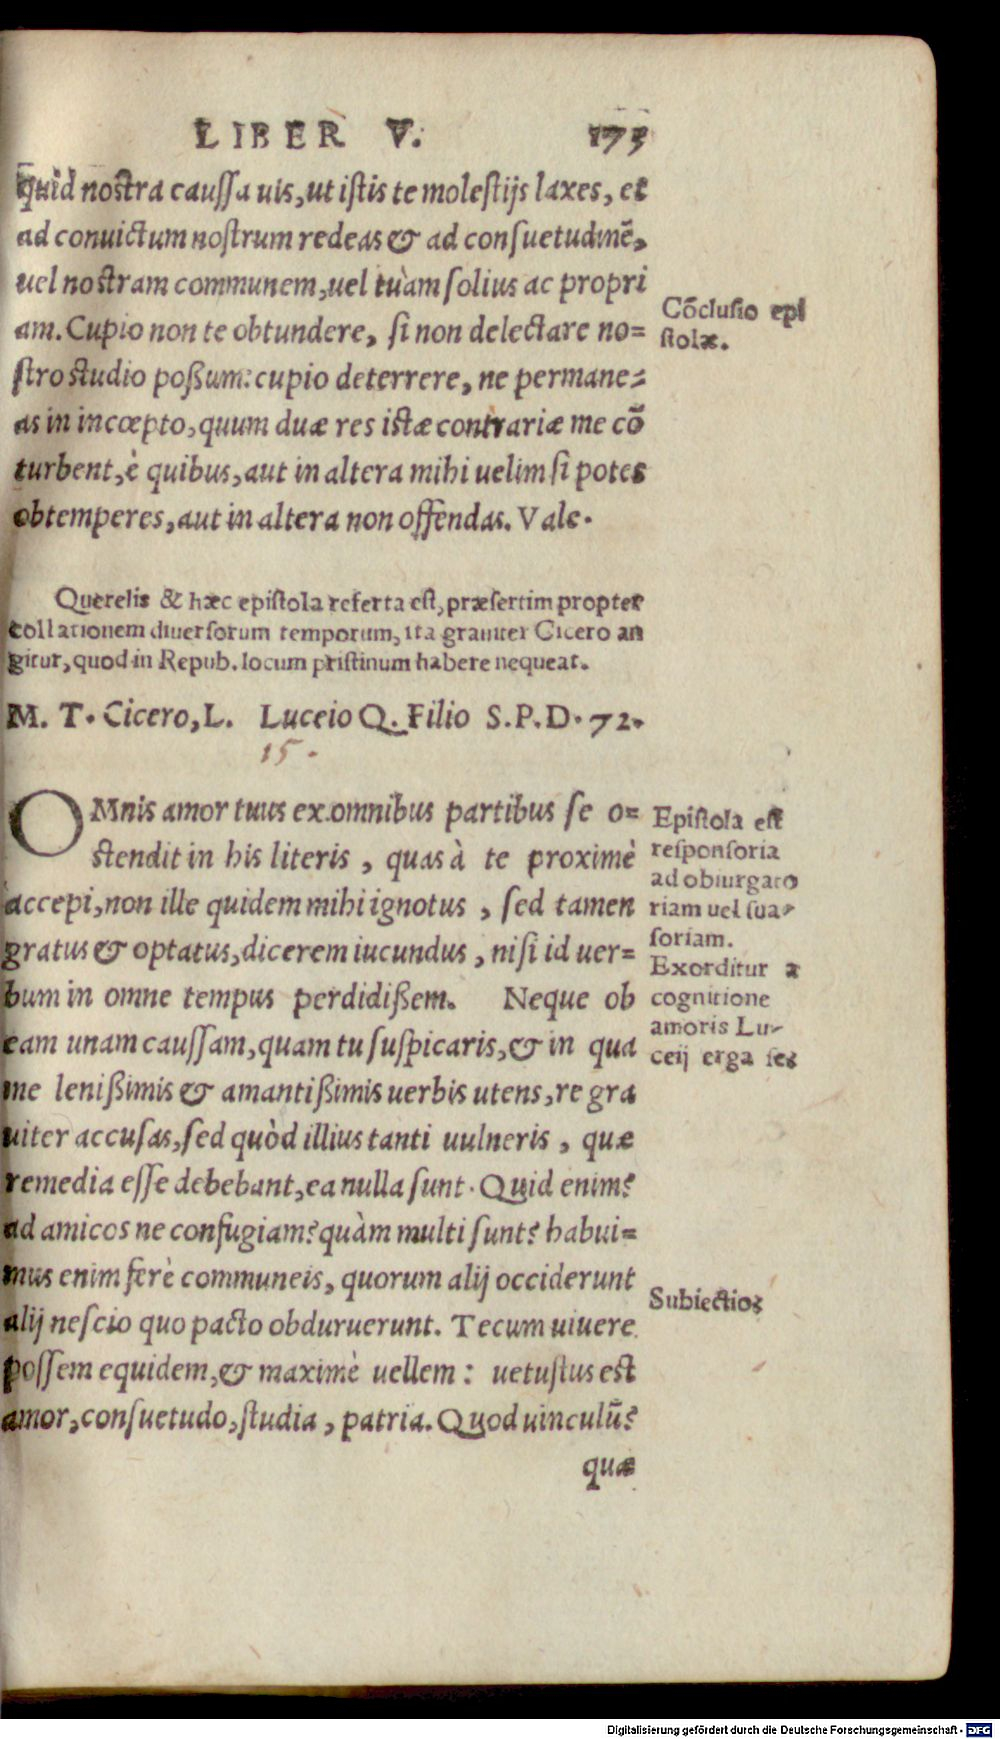 LIBER V. 173
quid nostra caussa uis, ut istis te molestijs laxes, et
ad conuictum nostrum redeas & ad consuetudinē,
uel nostram communem, uel tuàm solius ac propri
am. Cupio non te obtundere, si non delectare no=
stro studio poßum: cupio deterrere, ne permane=
as in incœpto, quum duæ res istæ contrariæ me cō
turbent, è quibus, aut in altera mihi uelim si potes
obtemperes, aut in altera non offendas. Vale.
Cōclusio epi
stolæ.
Querelis & hæc epistola referta est, præsertim propter
collationem diuersorum temporum, ita grauiter Cicero an
gitur, quod in Repub. locum pristinum habere nequeat.
M. T. Cicero, L. Lucceio Q. Filio S. P. D. 72.
15.
OMnis amor tuus ex omnibus partibus se o=
stendit in his literis, quas à te proximè
accepi, non ille quidem mihi ignotus, sed tamen
gratus & optatus, dicerem iucundus, nisi id uer=
bum in omne tempus perdidißem. Neque ob
eam unam caussam, quam tu suspicaris, & in qua
me lenißimis & amantißimis uerbis utens, re gra
uiter accusas, sed quòd illius tanti uulneris, quæ
remedia esse debebant, ea nulla sunt. Quid enim?
ad amicos ne confugiam? quàm multi sunt? habui=
mus enim ferè communeis, quorum alij occiderunt
alij nescio quo pacto obduruerunt. Tecum uiuere
possem equidem, & maximè uellem: uetustus est
amor, consuetudo, studia, patria. Quod uinculū?
quæ
Epistola est
responsoria
ad obiurgato
riam uel sua-
soriam.
Exorditur a
cognitione
amoris Lu-
ceij erga se:
Subiectio:
Digitalisierung gefördert durch die Deutsche Forschungsgemeinschaft - DFG